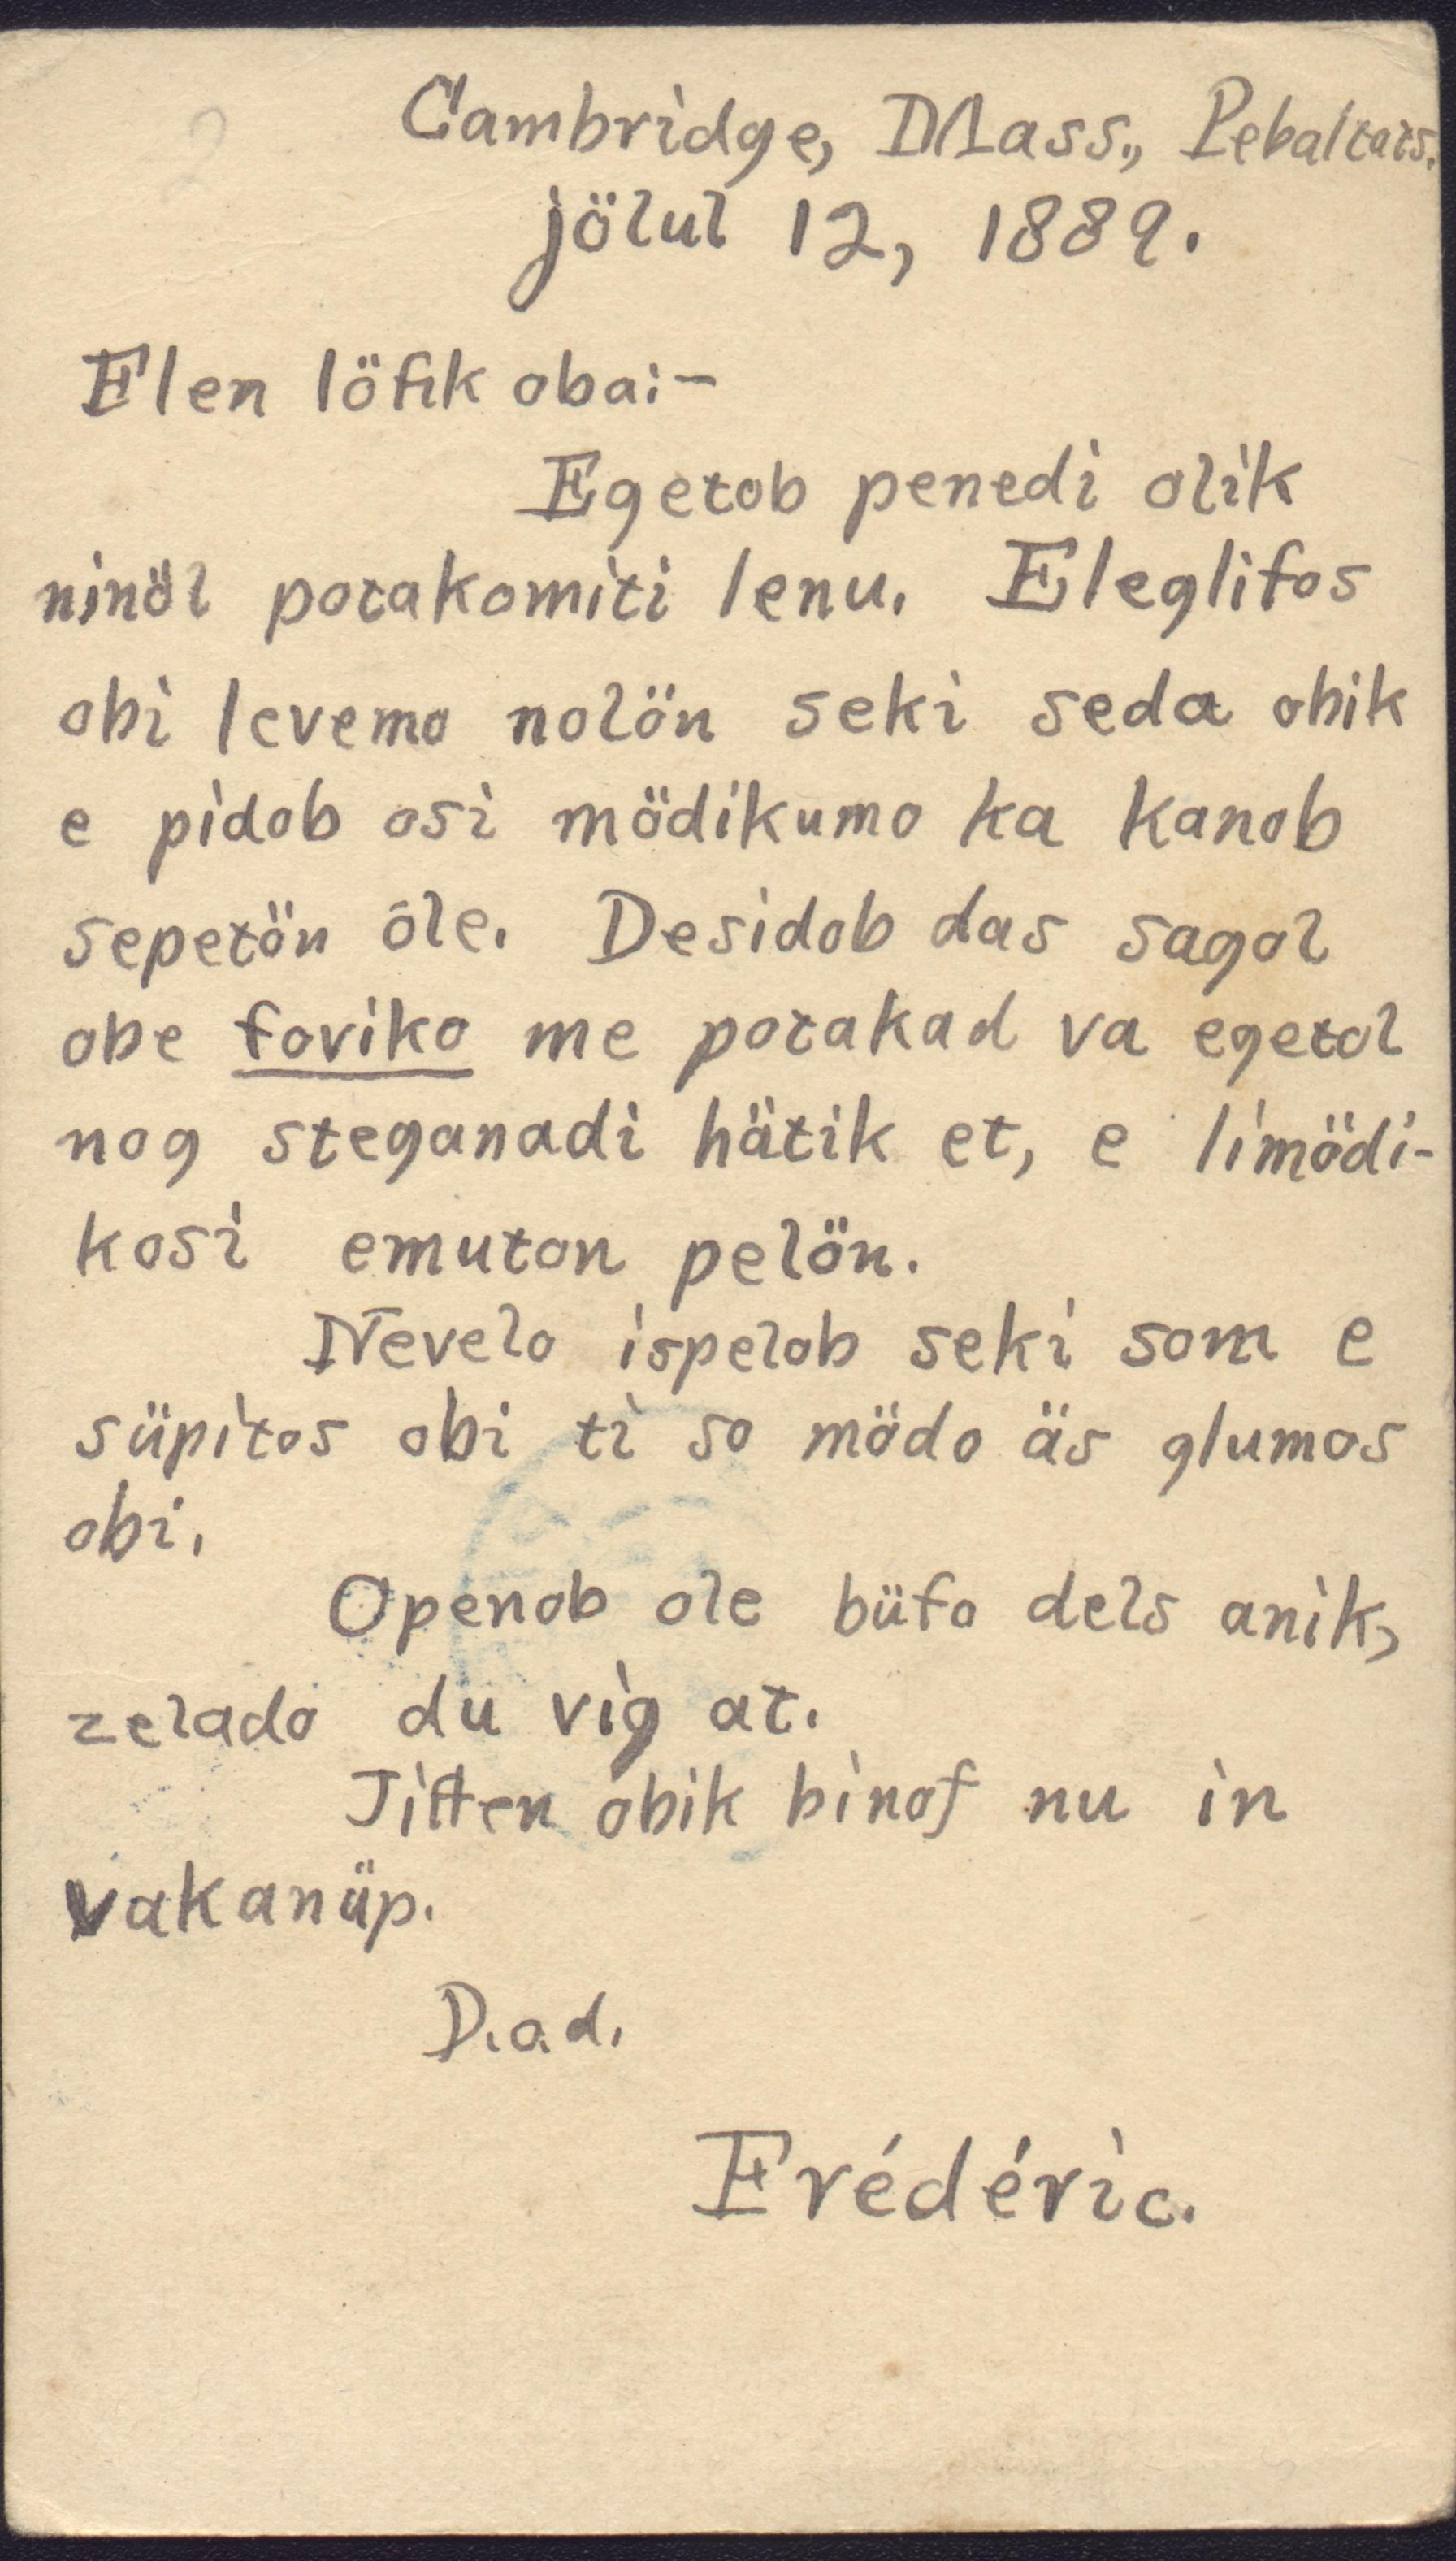 Cambridge, Mass., Pebaltats.
jölul 12, 1889.
Flen löfik oba:-
Egetob penedi olik
ninöl potakomiti lenu. Eleglifos
obi levemo nolön seki seda obik
e pidob osi mödikumo ka kanob
sepetön ole. Desidob das sagol
obe foviko me potakad va egetol
nog steganadi hätik et, e limödi-
kosi emuton pelön.
Nevelo ispelob seki som e
süpitos obi ti so mödo äs glumos
obi.
Openob ole büfo dels anik,
zelado du vig at.
Jiflen obik binof nu in
vakanüp.
D.o.d.
Frédéric.